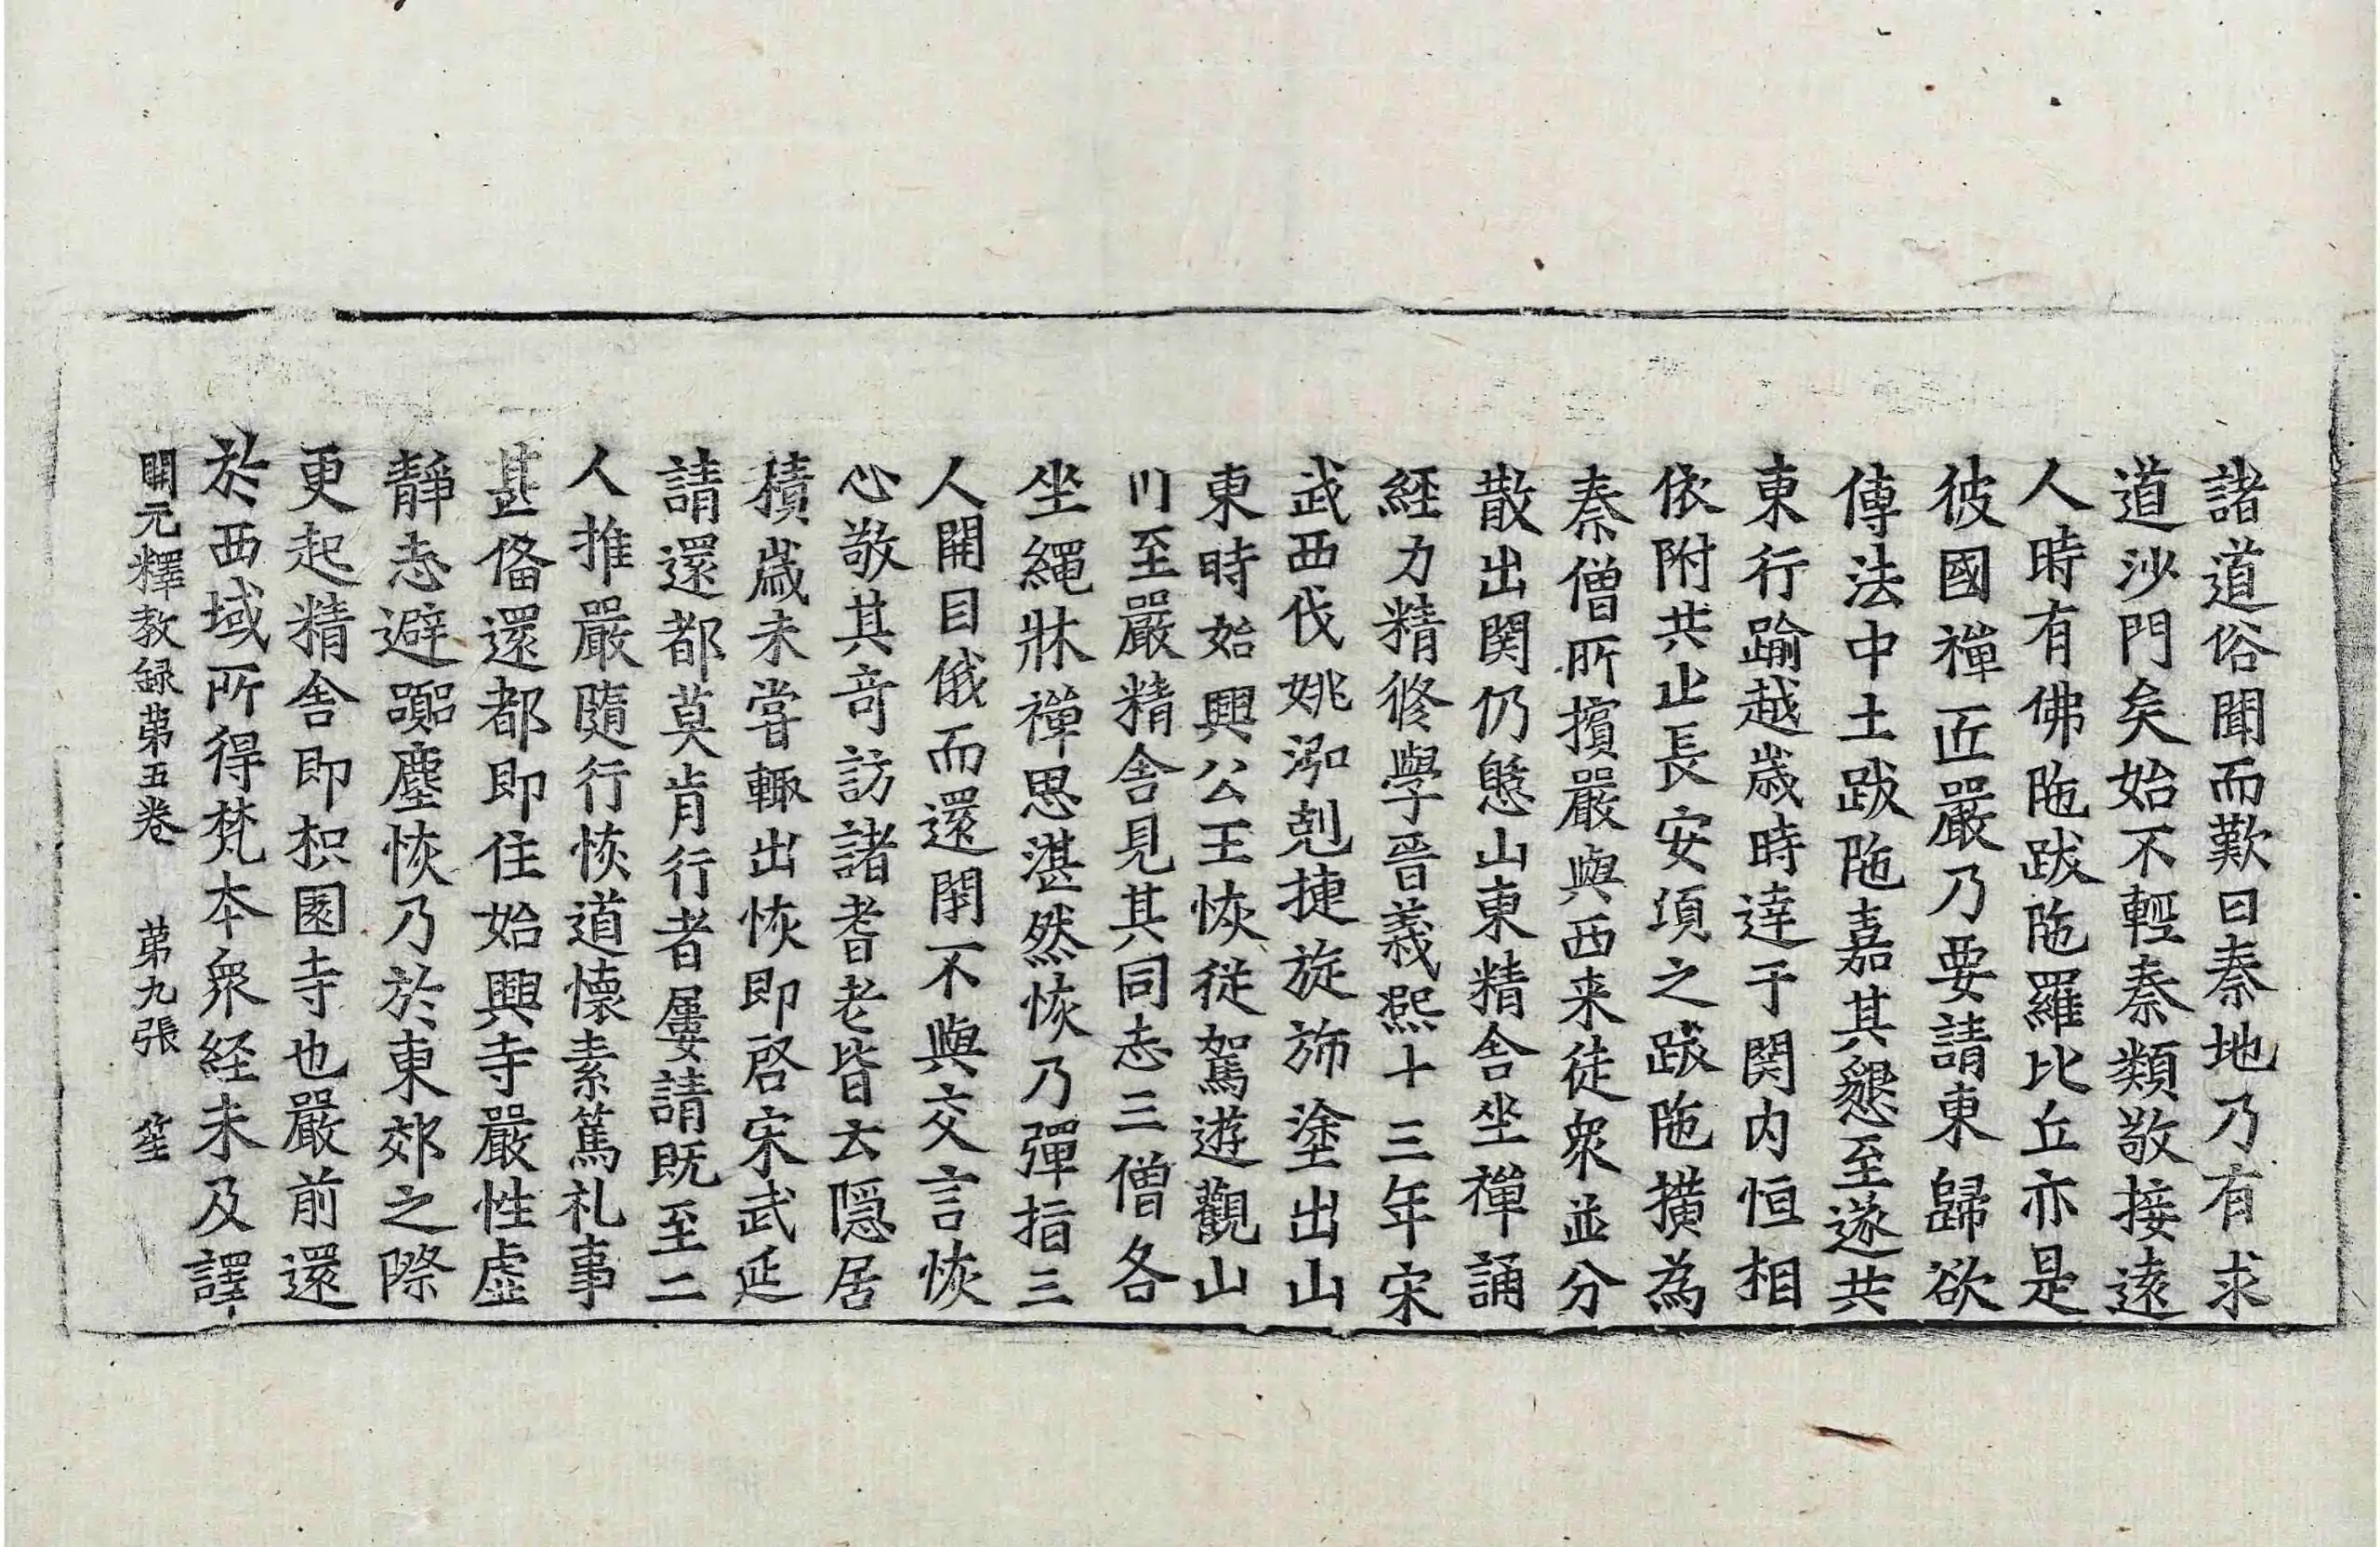 諸道俗聞而歎曰秦地乃有求
道沙門矣始不輕秦類敬接遠
人時有佛陁跋陁羅比丘亦是
彼國禪匠嚴乃要請東歸欲
傳法中土跋陁嘉其懇至遂共
東行踰越歲時達于関内恒相
依附共止長安頃之跋陁横為
秦僧所擯嚴與西来徒衆並分
散出関仍憇山東精舍坐禪誦
經力精修學晉義熙十三年宋
武西伐姚泓剋捷旋斾塗出山
東時始興公王恢從駕遊觀山
川至嚴精舍見其同志三僧各
坐繩牀禪思湛然恢乃彈指三
人開目俄而還閇不與交言恢
心敬其竒訪諸耆老皆云隱居
積歲未嘗輙出恢即啓宋武延
請還都莫肯行者屢請既至二
人推嚴隨行恢道懷素篤礼事
甚俻還都即住始興寺嚴性虛
靜志避嚻塵恢乃於東郊之際
更起精舍即枳園寺也嚴前還
於西域所得梵本衆経未及譯
開元釋教録苐五卷 苐九張 笙